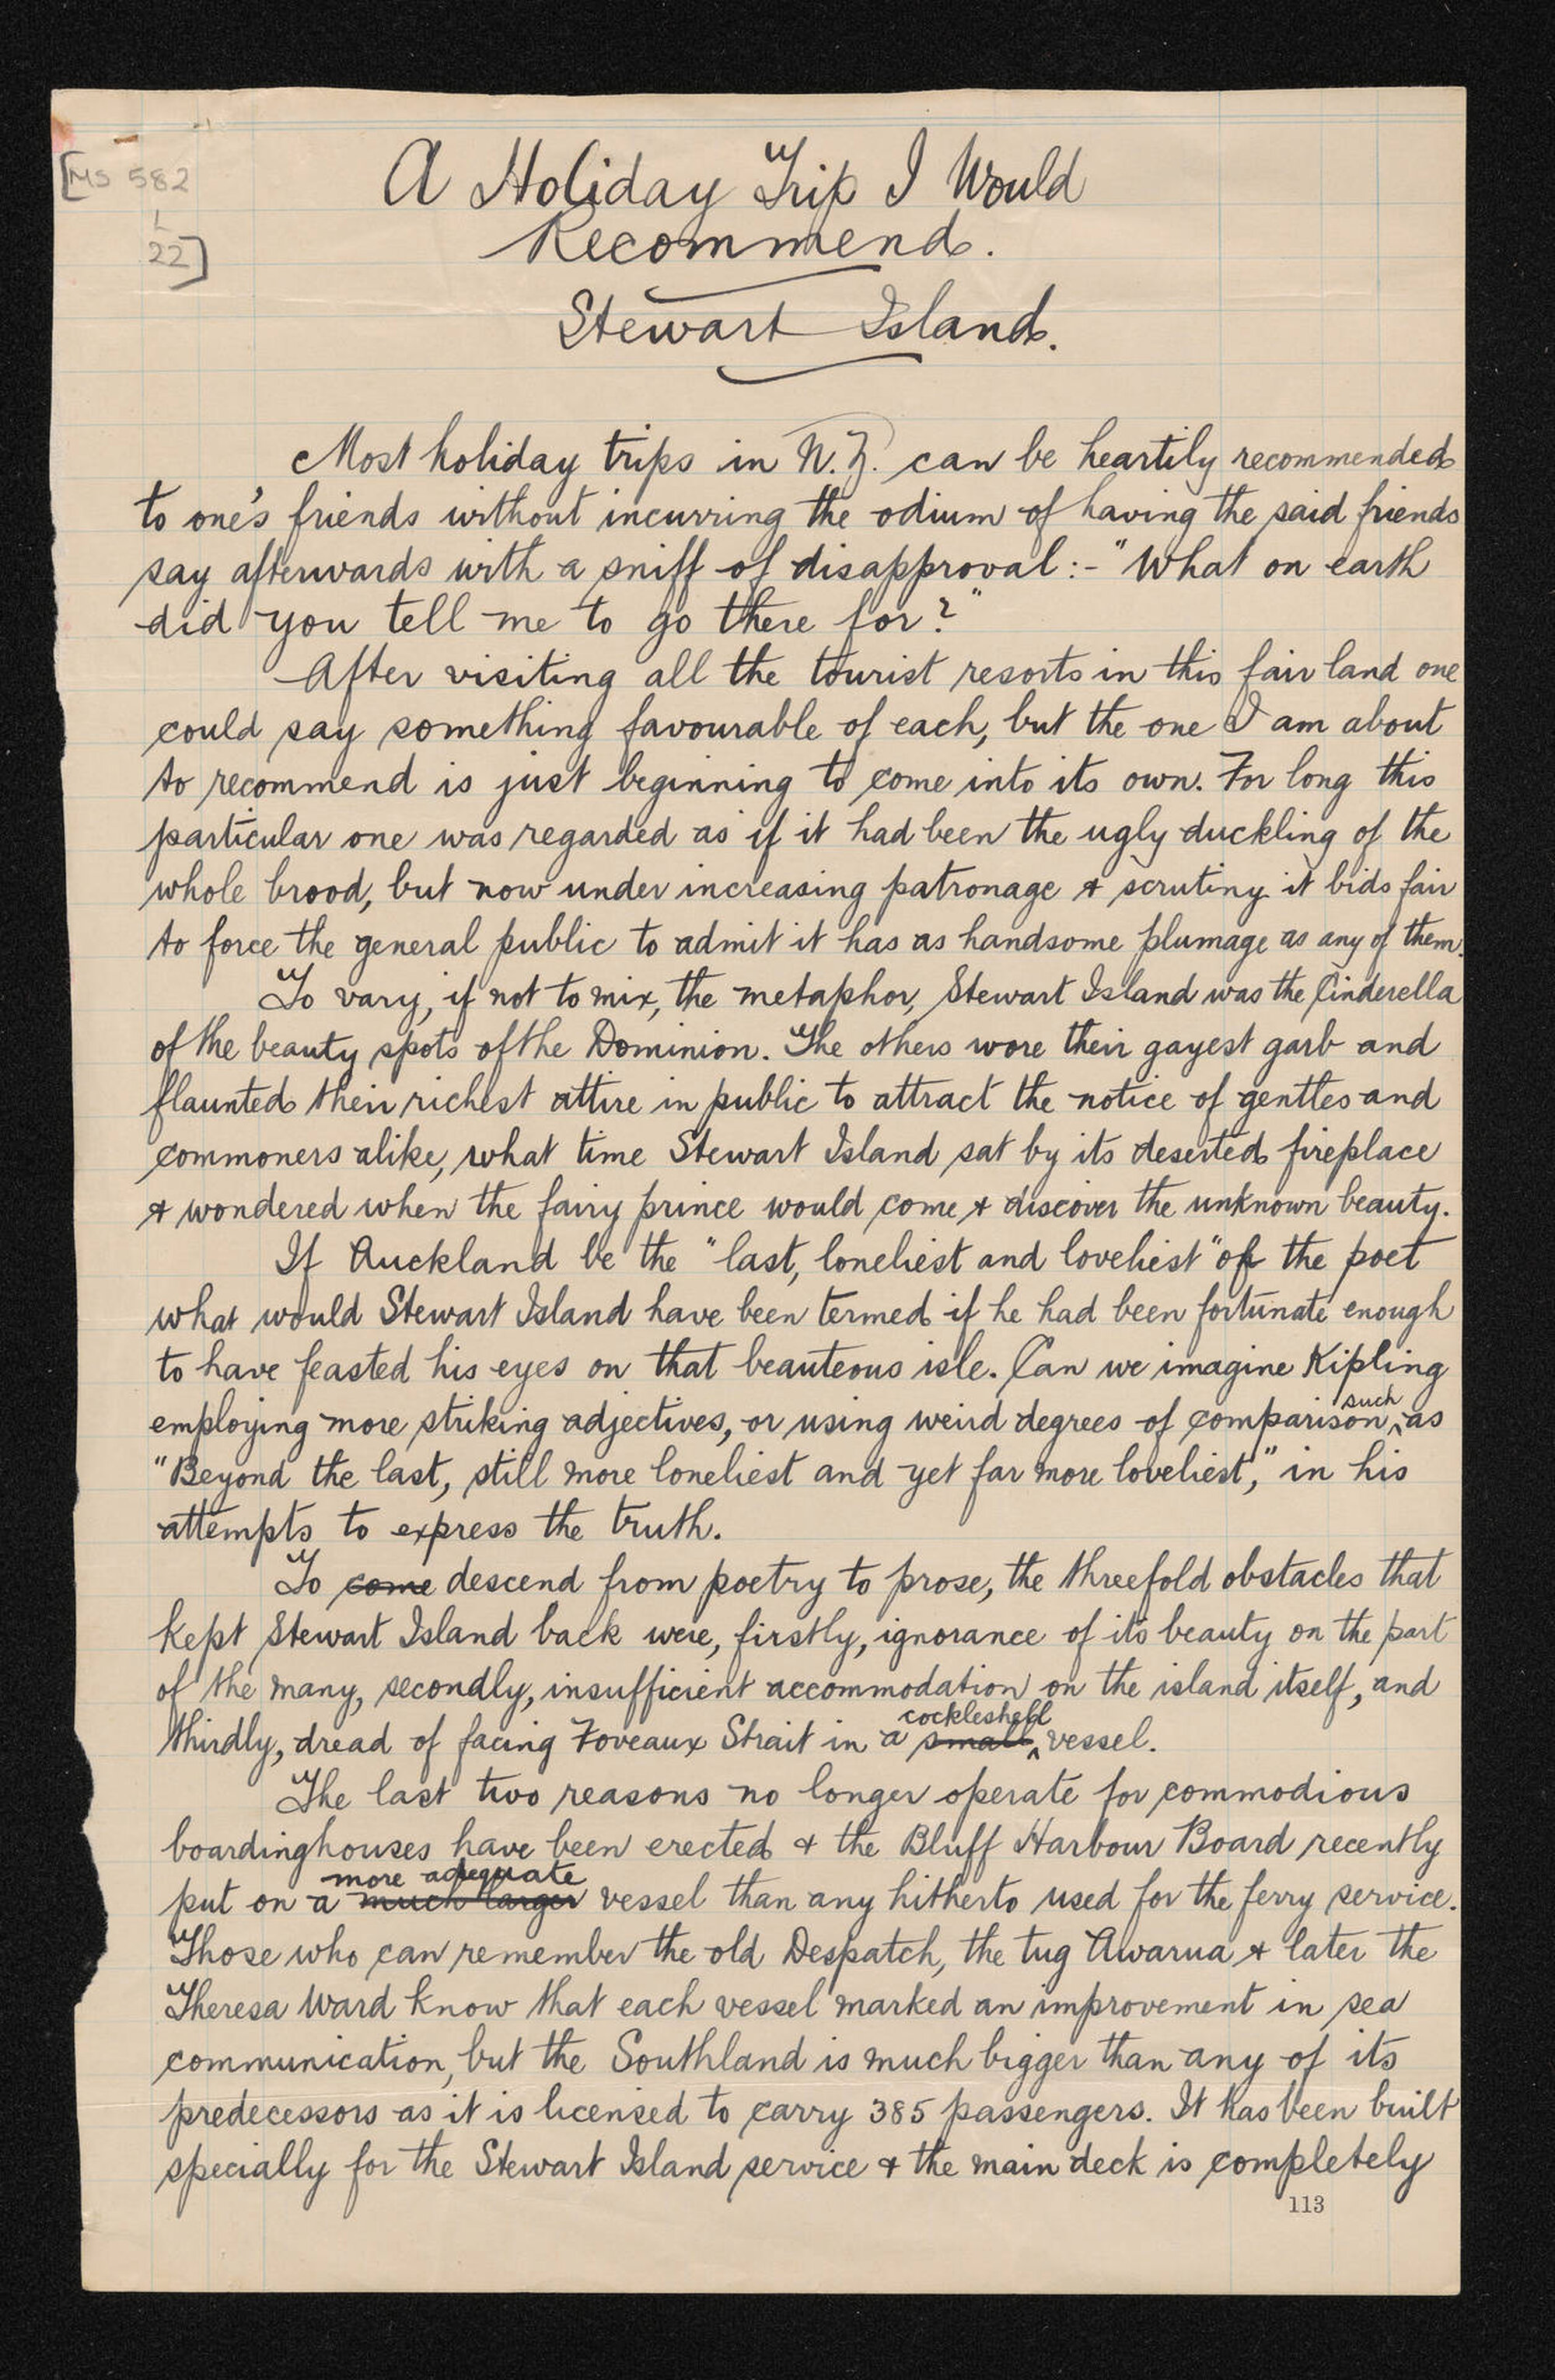 [MS 582
1
22]
A Holiday Trip I Would
Recommend.
Stewart Island.
Most holiday trips in N.Z. can be heartily recommended
to one's friends without incurring the odium of having the said friends
say afterwards with a sniff of disapproval :- "What on earth
did you tell me to go there for?"
After visiting all the tourist resorts in this fair land one
could say something favourable of each, but the one I am about
to recommend is just beginning to come into its own. For long this
particular one was regarded as if it had been the ugly duckling of the
whole brood, but now under increasing patronage & scrutiny it bids fair
to force the general public to admit it has as handsome plumage as any of them.
To vary, if not to mix, the metaphor, Stewart Island was the Cinderella
of the beauty spots of the Dominion. The others wore their gayest garb and
flaunted their richest attire in public to attract the notice of gentles and
commoners alike, what time Stewart Island sat by its deserted fireplace
& wondered when the fairy prince would come & discover the unknown beauty.
If Auckland be the "last, loneliest and loveliest" of the poet
what would Stewart Island have been termed if he had been fortunate enough
to have feasted his eyes on that beauteous isle. Can we imagine Kipling
employing more striking adjectives, or using weird degrees of comparison, such as
"Beyond the last, still more loneliest and yet far more loveliest," in his
attempts to express the truth.
To come descend from poetry to prose, the threefold obstacles that
kept Stewart Island back were, firstly, ignorance of its beauty on the part
of the many, secondly, insufficient accommodation on the island itself, and
thirdly, dread of facing Foveaux Strait in a small cockleshell vessel.
The last two reasons no longer operate for commodious
boardinghouses have been erected & the Bluff Harbour Board recently
put on a much larger more adequate vessel than any hitherto used for the ferry service.
Those who can remember the old Despatch, the tug Awarua & later the
Theresa Ward know that each vessel marked an improvement in sea
communication, but the Southland is much bigger than any of its
predecessors as it is licensed to carry 385 passengers. It has been built
specially for the Stewart Island service & the main deck is completely
113